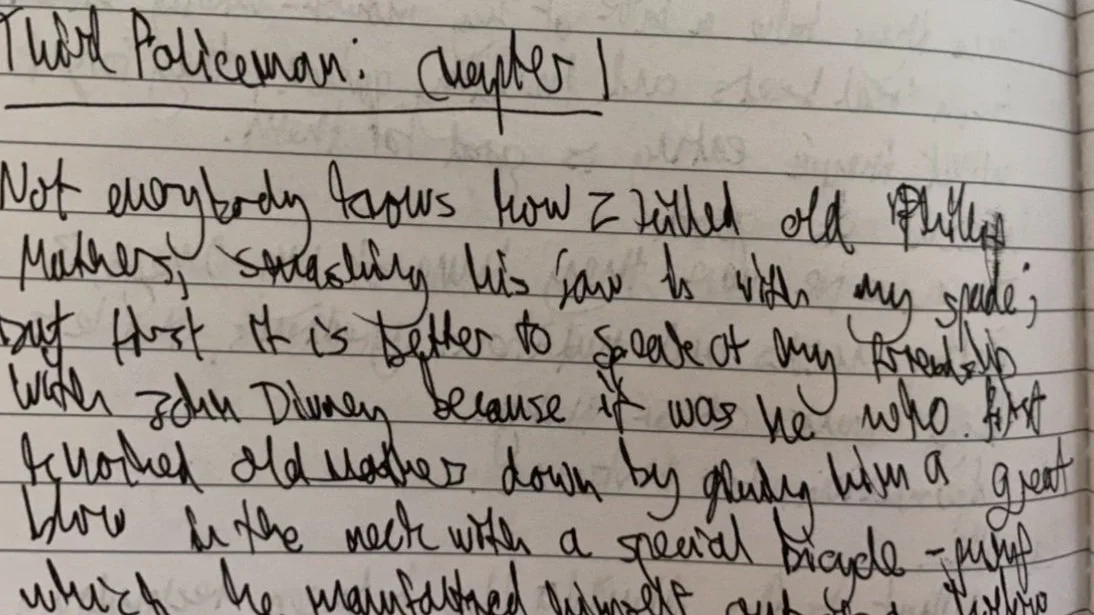 Third Policeman: Chapter 1
Not everybody knows how I killed old Phillip
Mathers, smashing his jaw in with my spade;
but first it is better to speak of my friendship
with John Divney because it was he who first
knocked old Mathers down by giving him a great
blow in the neck with a special bicycle-pump
which he manufactured himself out of a